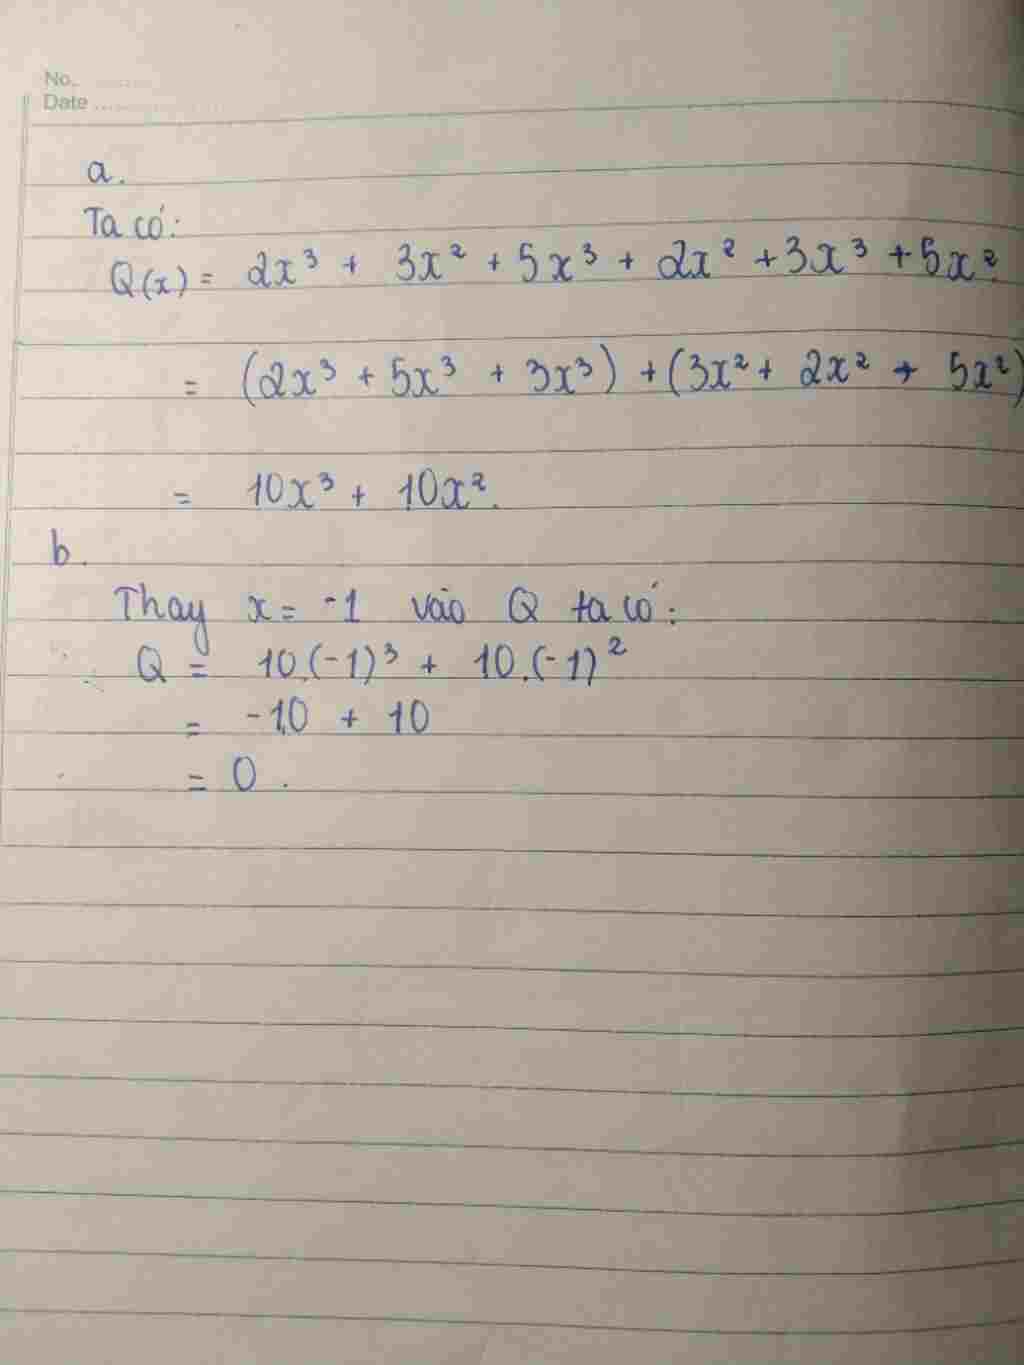 No. ........
Date ........
a.
Ta có:
Q(x) = 2x³ + 3x² + 5x³ + 2x² + 3x³ + 5x².
= (2x³ + 5x³ + 3x³) + (3x² + 2x² + 5x²)
= 10x³ + 10x².
b.
Thay x = -1 vào Q ta có:
Q = 10.(-1)³ + 10.(-1)²
= -10 + 10
= 0.